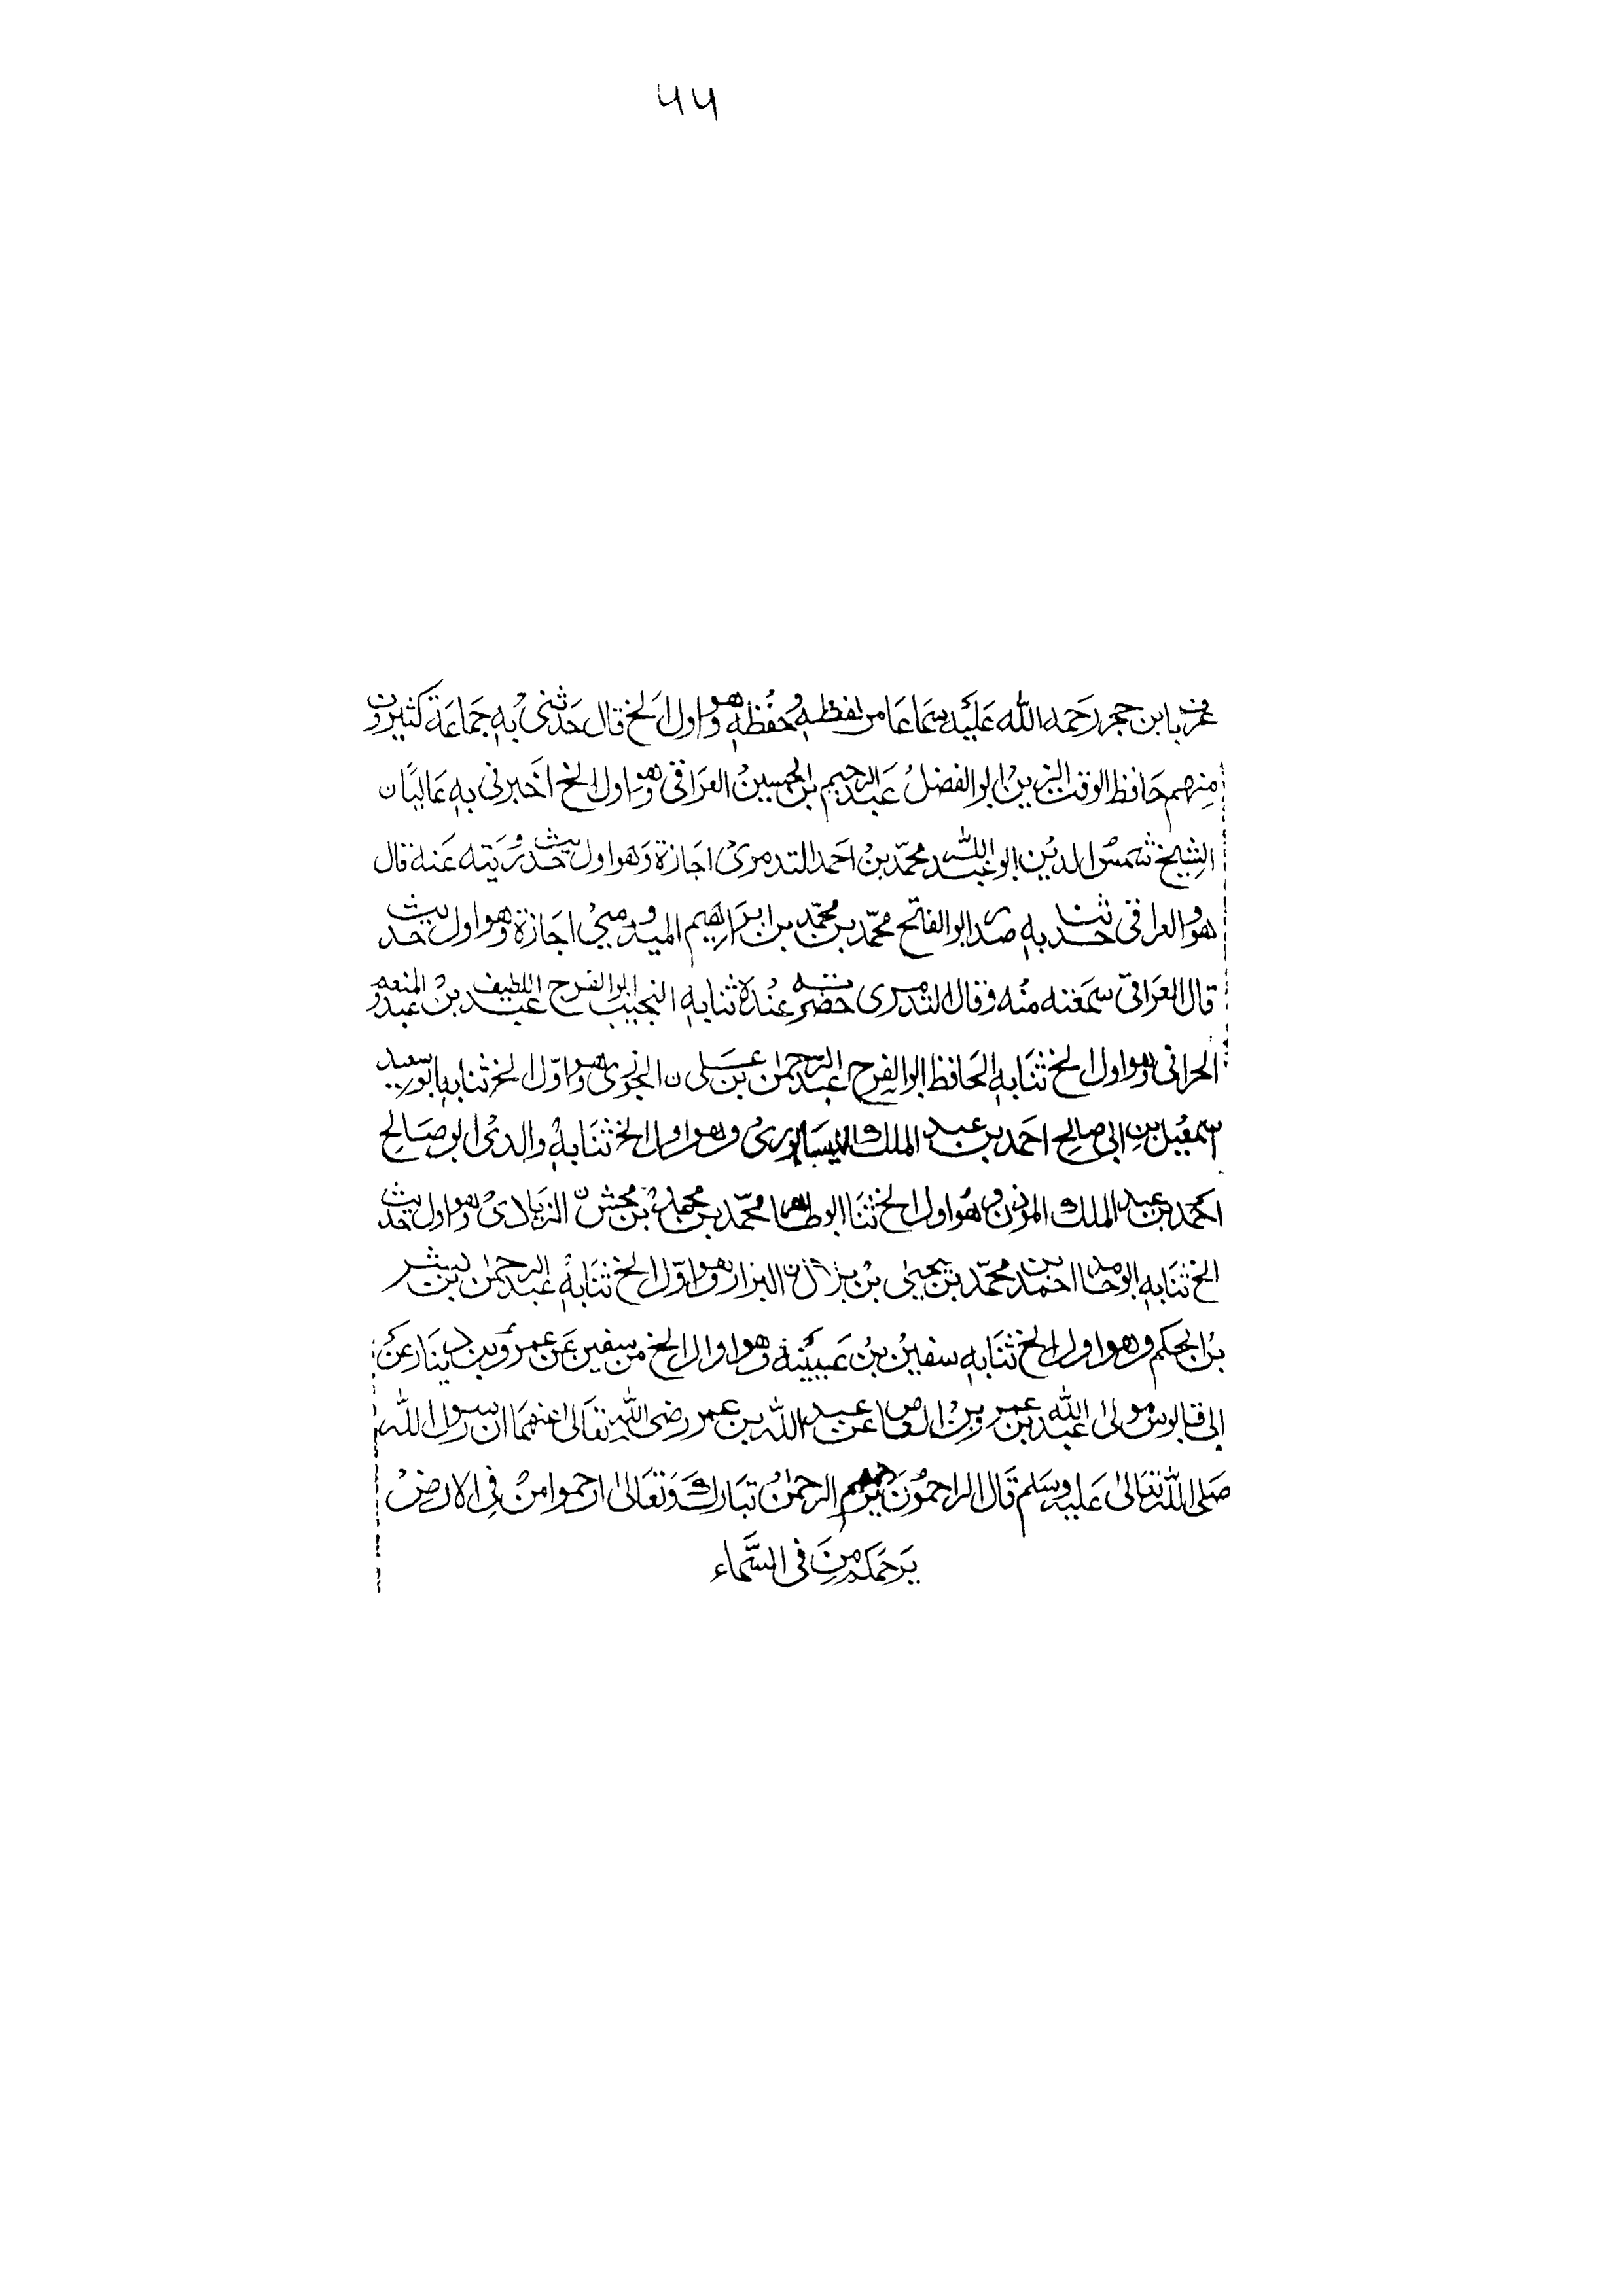 ۶۶
عرف بابن حجر رحمه الله عليه سماعا من لفظه وحفظه وهو اول الخ قال حدثنى به جماعة كثيرون
منهم حافظ الوقت الزين ابو الفضل عبد الرحيم بن الحسين العراقى وهو اول الخ اخبرنى به عاليا ن
الشيخ شمس الدين ابو عبد الله محمد بن احمد التدمرى اجازة وهو اول حديث رويته عنه قال
هو والعراقى حدثنا به صدر ابو الفاتح محمد بن محمد بن ابراهيم الميدومى اجازة وهو اول حديث
قال العراقى سمعته منه وقال التدمرى حضرته عنده ثنا به النجيب ابو الفرج عبد اللطيف بن عبد المنعم و
الحرانى وهو اول الخ ثنا به الحافظ ابو الفرح عبد الرحمن بن على ن الجوزى وهو اول الخ ثنا به ابو سعيد
اسمعيل بن ابى صالح احمد بن عبد الملك النيسابورى وهو اول الخ ثنا به والدى ابو صالح
احمد بن عبد الملك الموذن وهو اول الخ ثنا ابو طاهر محمد بن محمد بن محمش ن الزيادى وهو اول حديث
الخ ثنا به ابو حامد احمد بن محمد بن يحيى بن بلال ن البزار وهو اول الخ ثنا به عبد الرحمن بن بشر
بن الحكم وهو اول الخ ثنا به سفين بن عيينة وهو اول الخ من سفين عن عمرو بن دينار عن
ابى قابوس مولى عبد الله بن عمرو بن العاص عن عبد الله بن عمر رضى الله تعالى عنهما ان رسول الله
صلى الله تعالى عليه وسلم قال الراحمون يرحمهم الرحمن تبارك وتعالى ارحموا من فى الارض
يرحمكم من فى السماء